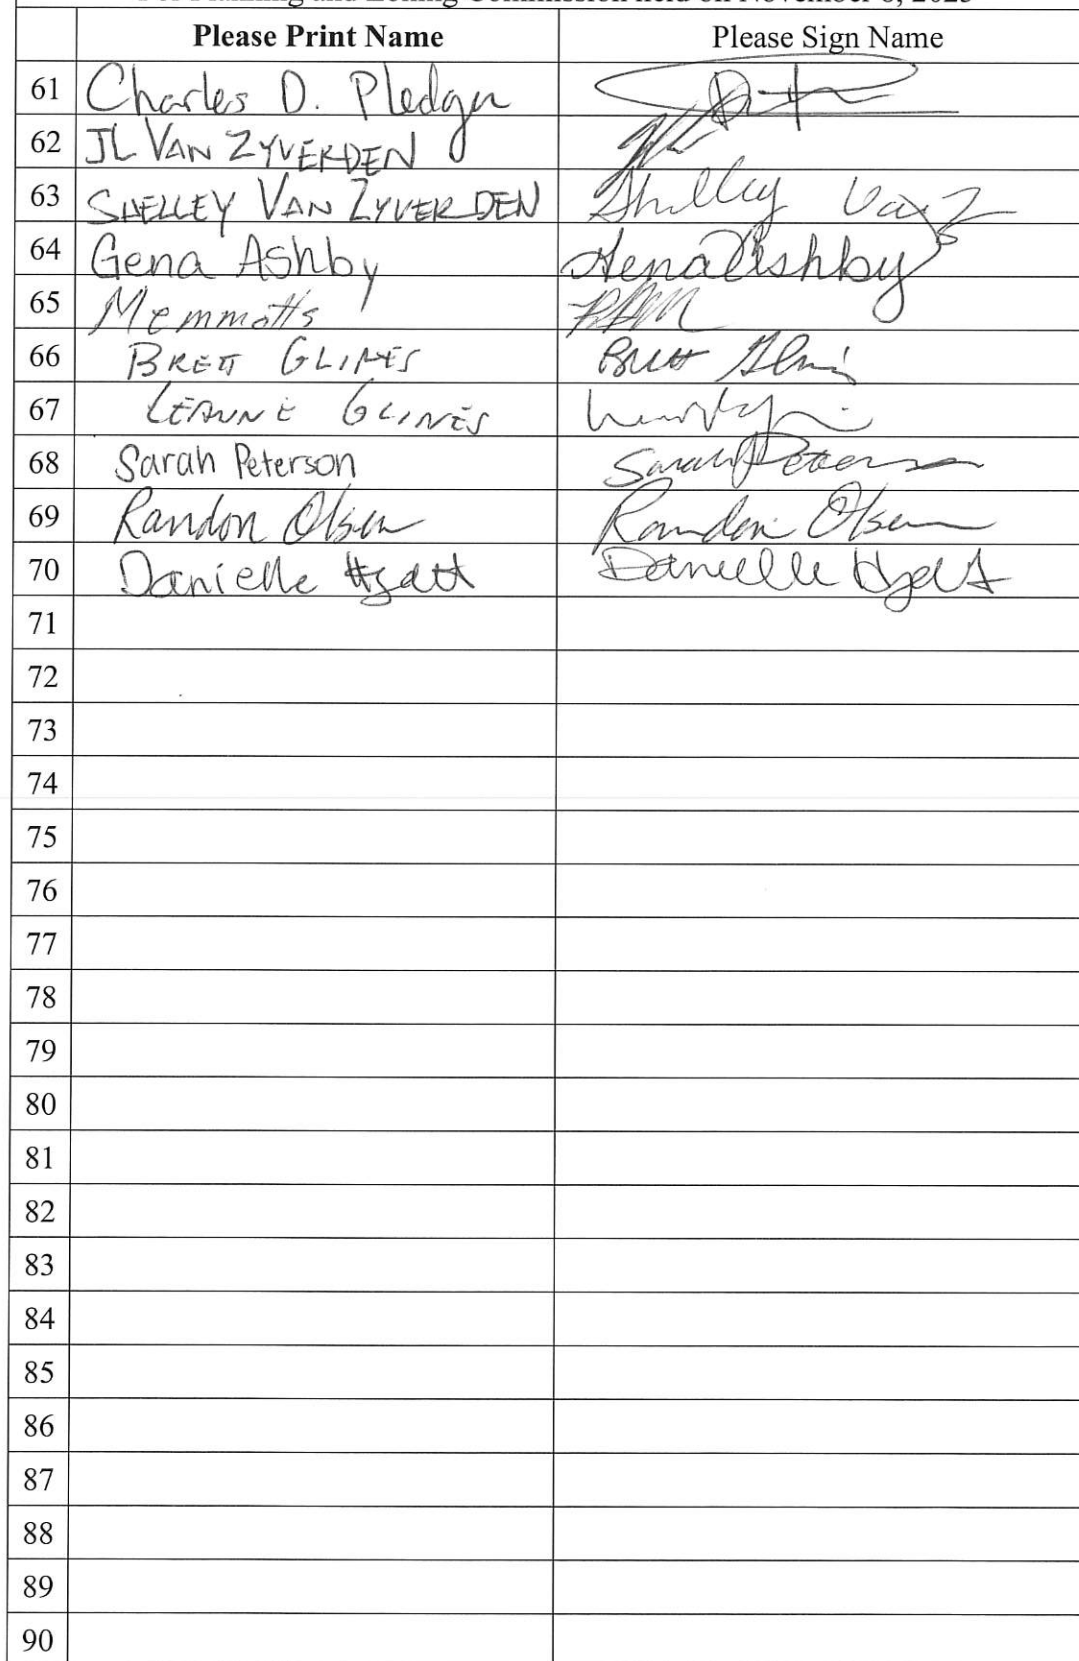 For Planning and Zoning Commission held on November 8, 2023
Please Print Name Please Sign Name
61 Charles D. Pledger
62 JL VAN ZYVERDEN
63 SHELLEY VAN ZYVERDEN Shelley Van Z
64 Gena Ashby Gena Ashby
65 Memmotts
66 BRETT GLINES Brett Glines
67 LEAUNE GLINES
68 Sarah Peterson Sarah Peterson
69 Randon Olsen Randon Olsen
70 Danielle Hyatt Danielle Hyatt
71
72
73
74
75
76
77
78
79
80
81
82
83
84
85
86
87
88
89
90